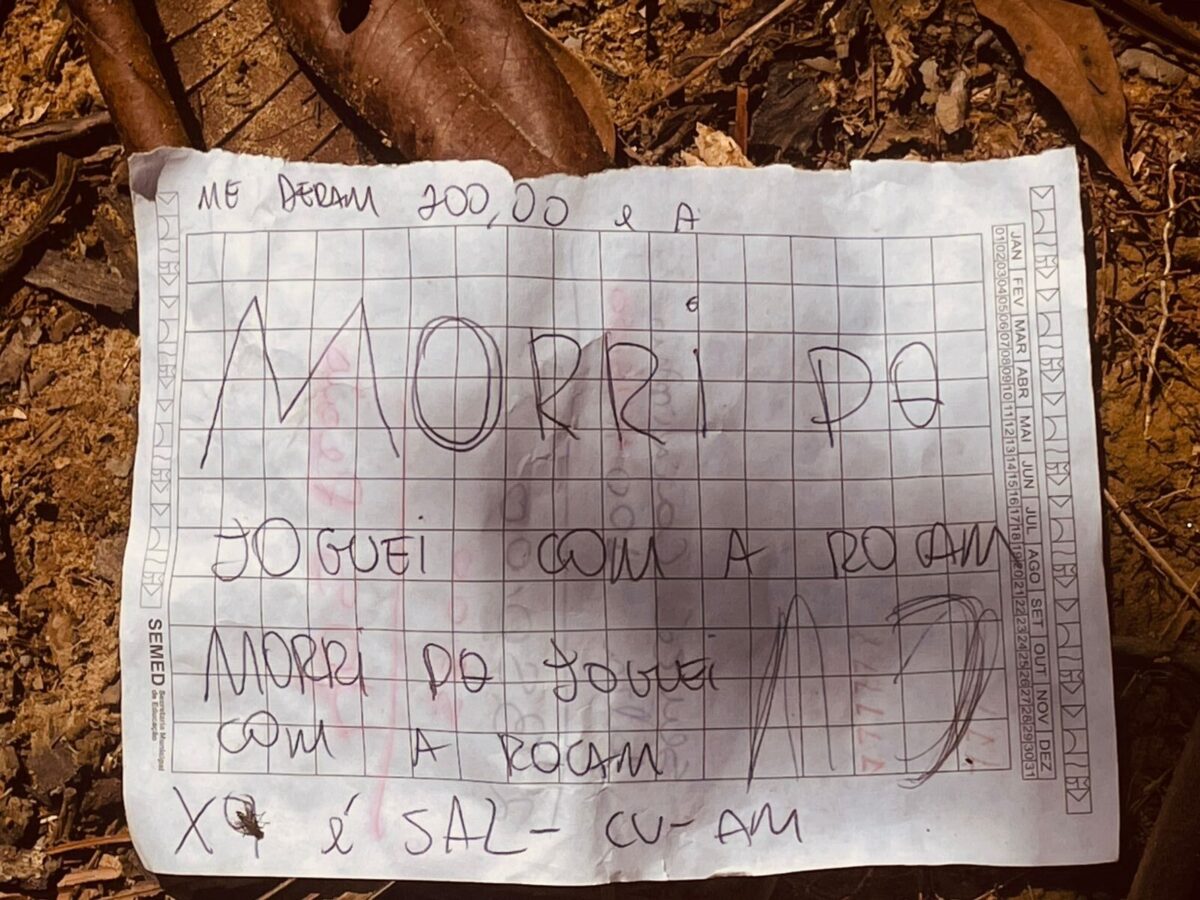 ME DERAM 200,00 e A
MORRi PO
JOGUEi COM A ROCAM
MORRi PO JOGUEi
COM A ROCAM
é SAL - CU - AM
SEMED Secretaria Municipal de Educação
JAN FEV MAR ABR MAI JUN JUL AGO SET OUT NOV DEZ
01 02 03 04 05 06 07 08 09 10 11 12 13 14 15 16 17 18 19 20 21 22 23 24 25 26 27 28 29 30 31